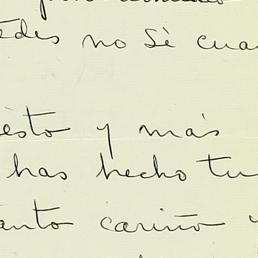 edes no sè cua
èsto y más
has hecho tu
anto cariño y